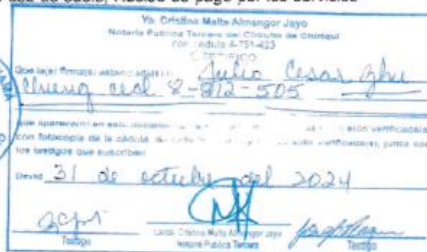 de pago por los servicios
Yo, Cristina Malte Almengor Jayo
Notaria Pública Tercera del Circuito de Chiriquí
con cédula 4-751-423
CERTIFICO
Que la(s) firma(s) Julio Cesar Zhu
Cheung ced 8-912-505
que aparece(n) en este documento verificada(s)
con fotocopia de la cédula verificada(s), junto con
los testigos que suscriben
David 31 de octubre del 2024
Testigo
Licda. Cristina Malte Almengor Jayo
Testigo
Notaria Pública Tercera